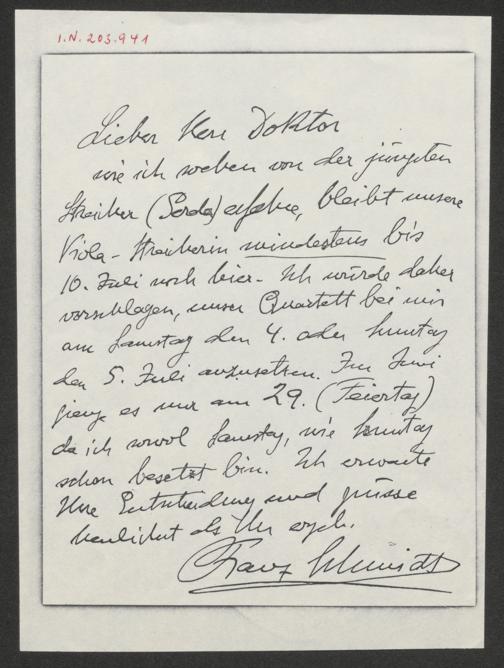 I.N. 203.941
Lieber Herr Doktor
wie ich soeben von der jüngsten
Streicher (Gerda) erfahre, bleibt unsere
Viola-Streicherin mindestens bis
10. Juli noch hier. Ich würde daher
vorschlagen, unser Quartett bei mir
am Samstag den 4. oder Sonntag
den 5. Juli anzusetzen. Im Juni
gienge es nur am 29. (Feiertag)
da ich sowol Samstag, wie Sonntag
schon besetzt bin. Ich erwarte
Ihre Entscheidung und grüsse
herzlichst als Ihr ergeb.
Franz Schmidt